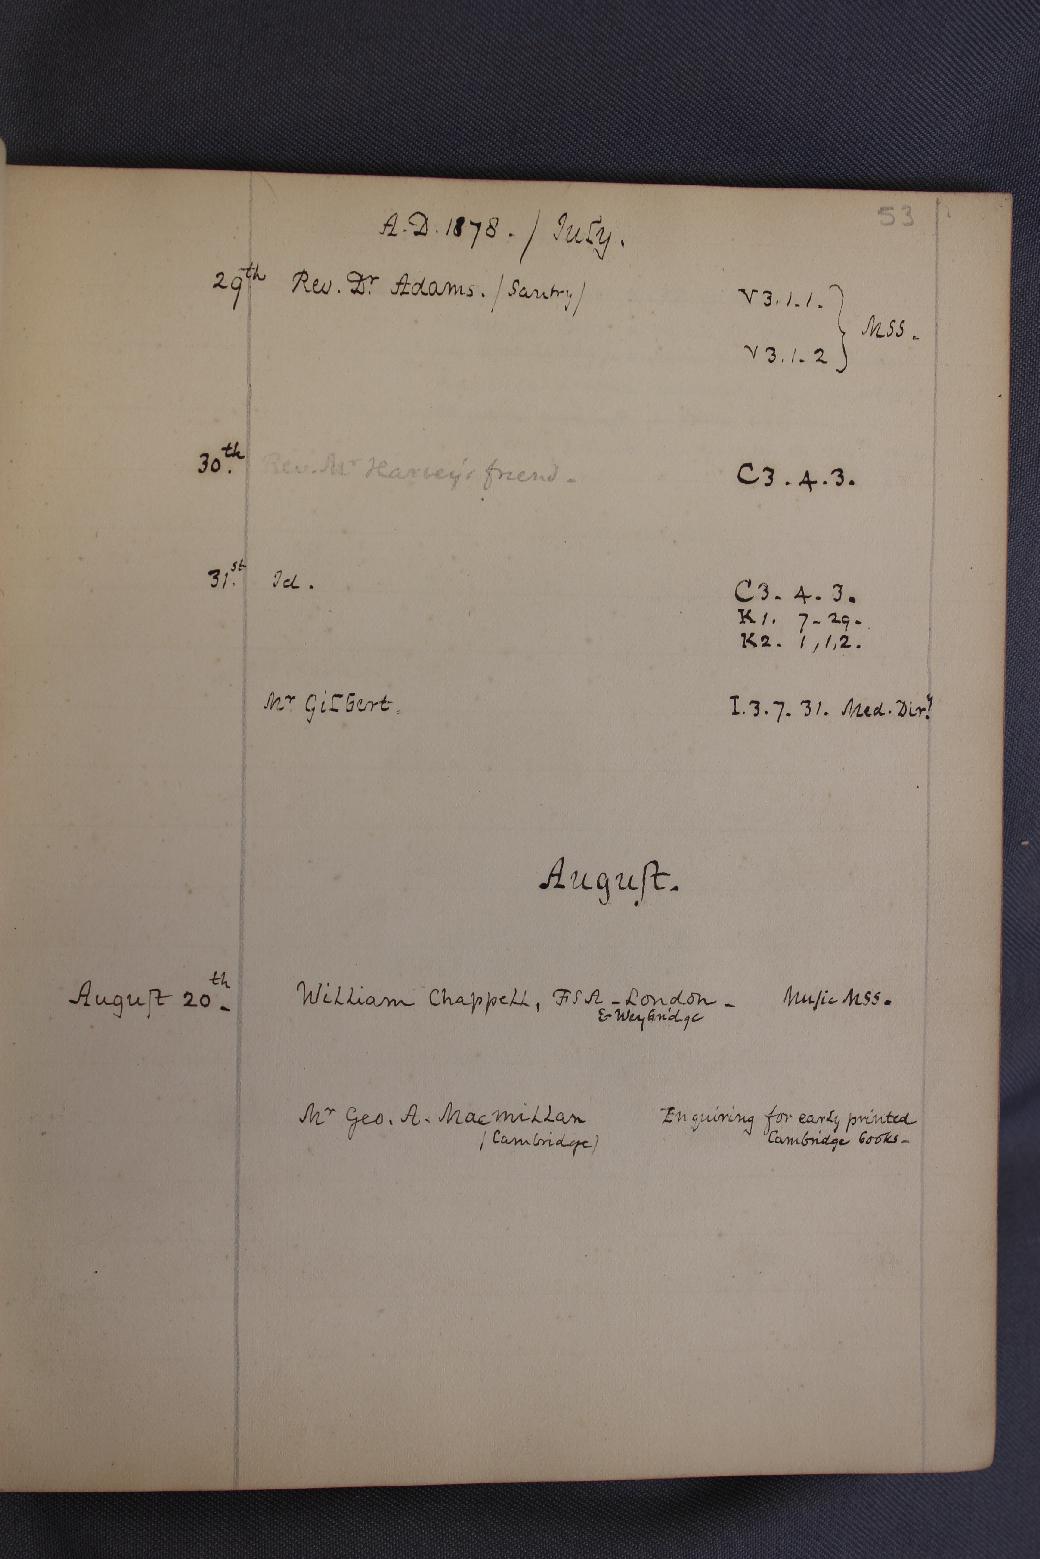 53
A.D. 1878. / July.
29th Rev. Dr Adams. (Santry) V3.1.1. } MSS.
V3.1.2
30th. Rev. Mr Harvey's friend. C3.4.3.
31st. Id. C3. 4. 3.
K1. 7-29.
K2. 1,1,2.
Mr Gilbert. I.3.7. 31. Med. Diry
August.
August 20th William Chappell, FSA - London - Music MSS.
& Weybridge
Mr Geo. A. Macmillan Enquiring for early printed
(Cambridge) Cambridge books -